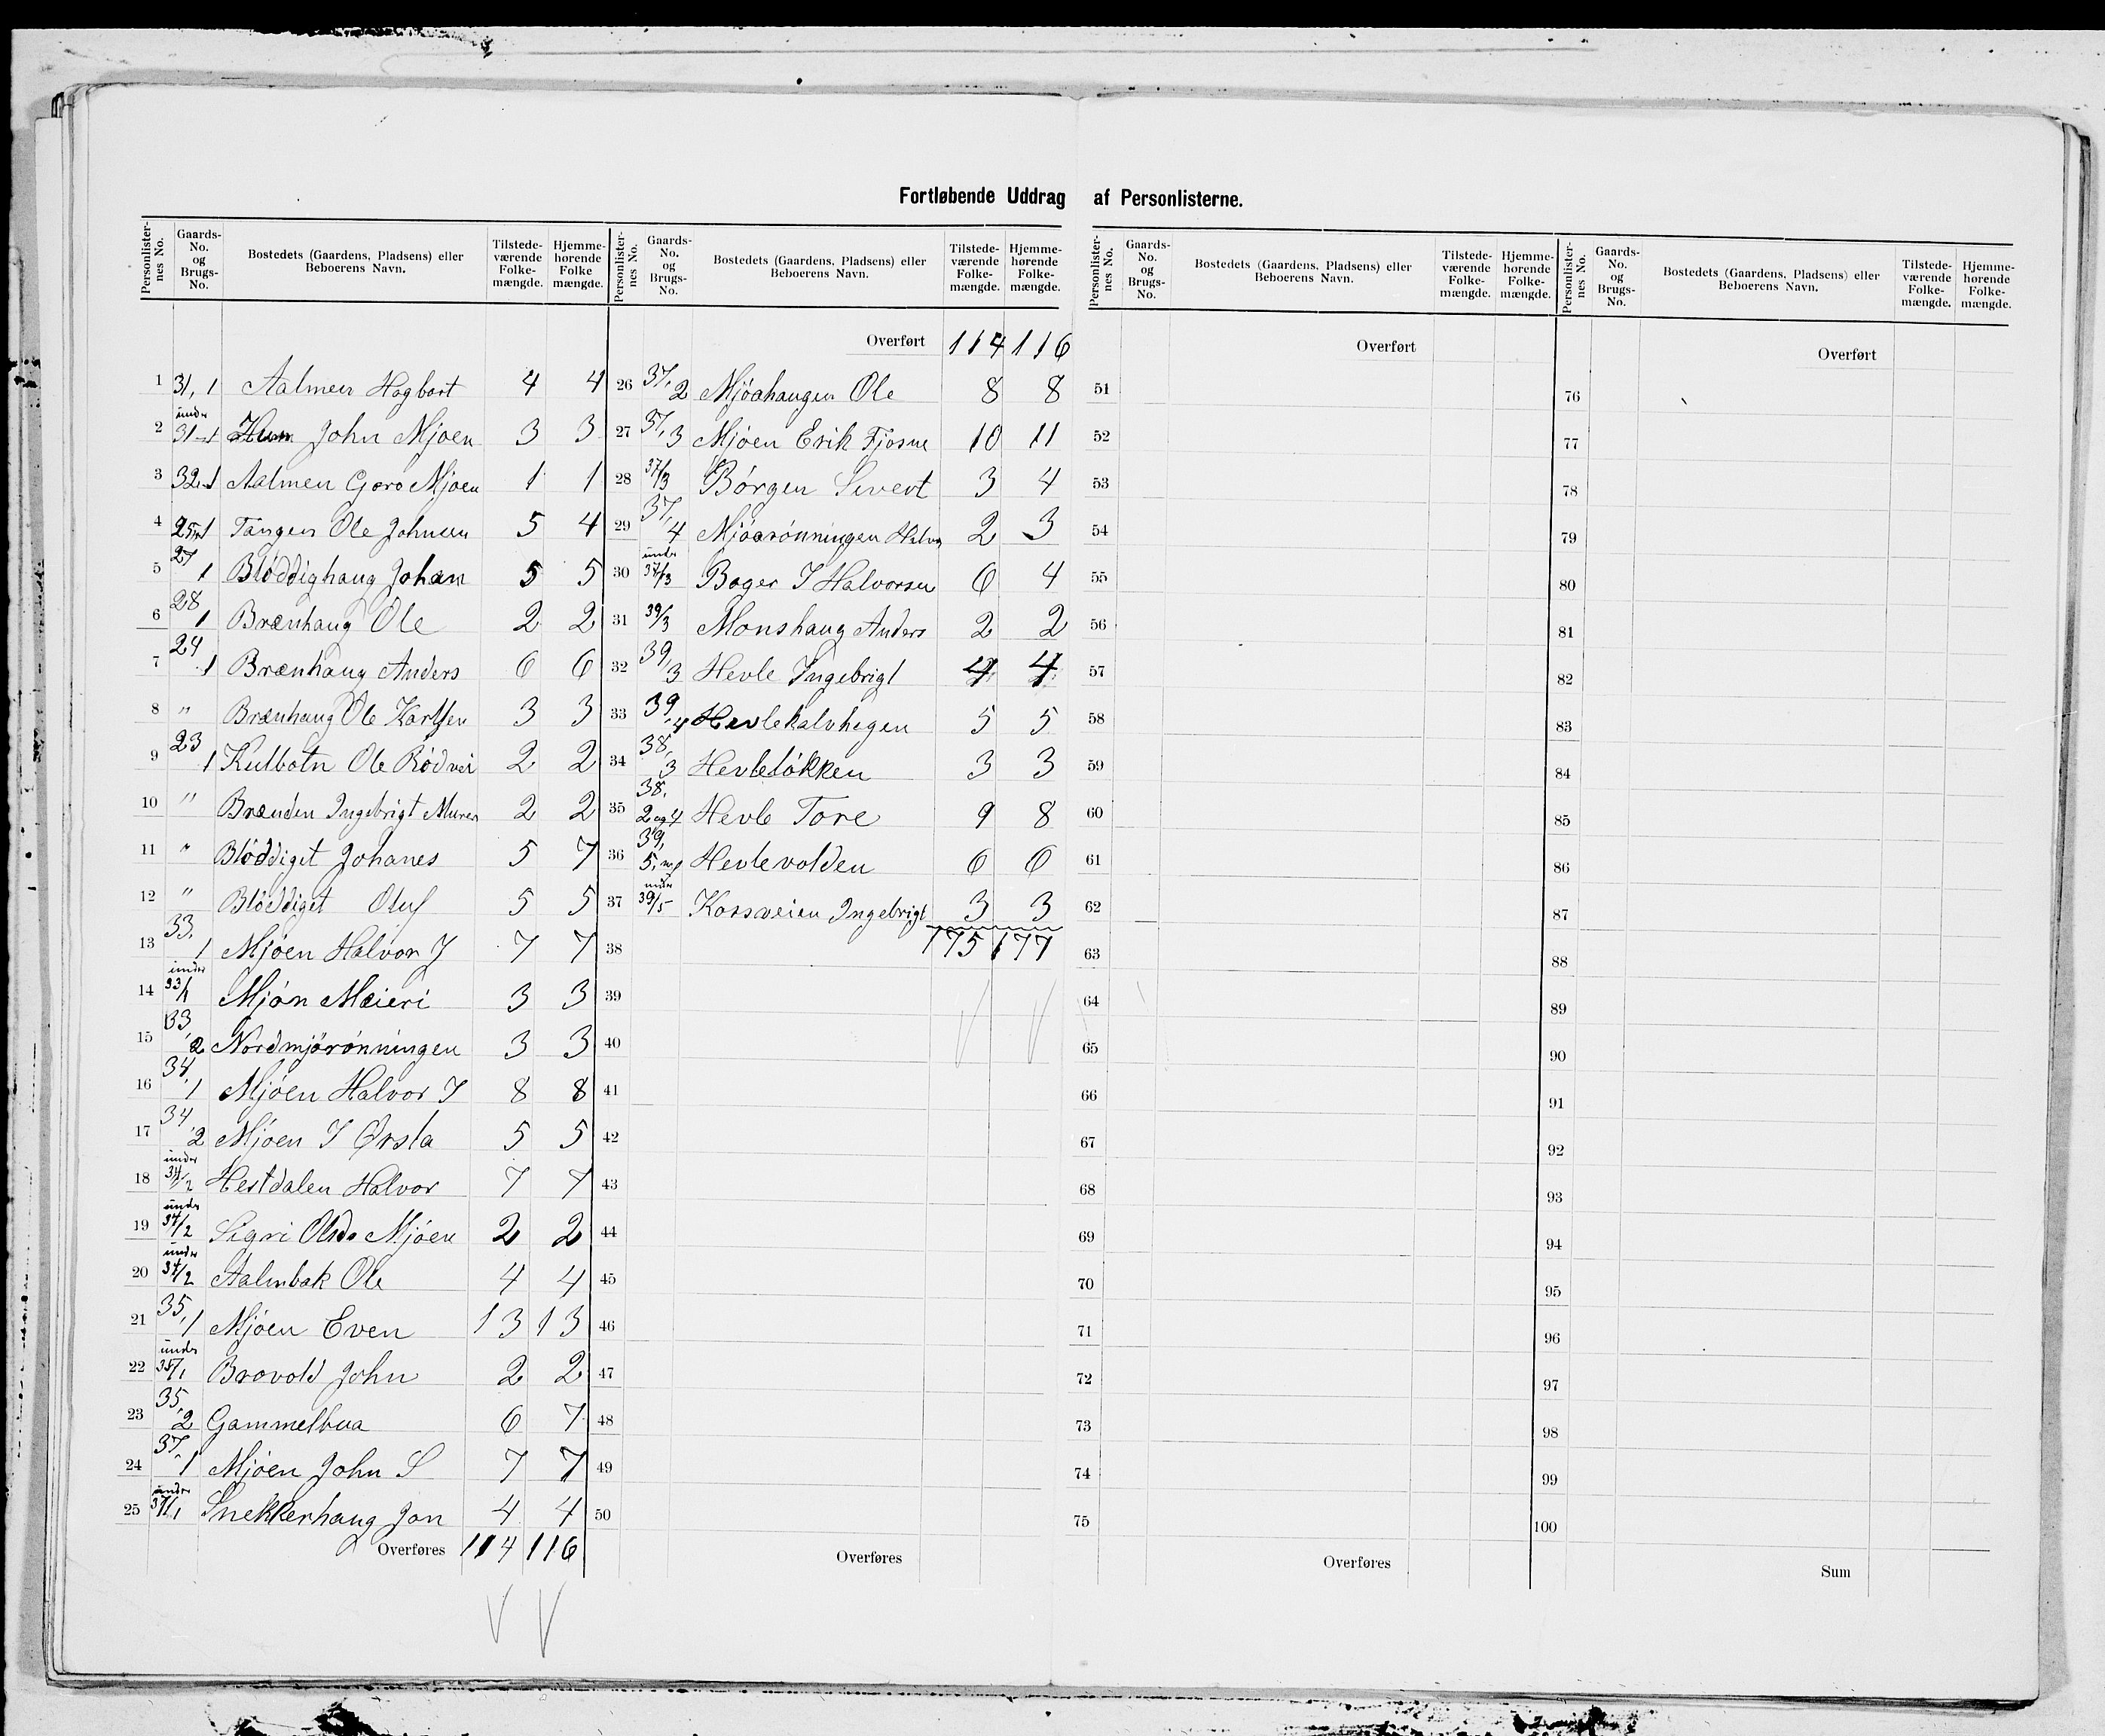 Fortløbende Uddrag af Personlisterne.
Personlister-nes No. Gaards-No. og Brugs-No. Bostedets (Gaardens, Pladsens) eller Beboerens Navn. Tilstede-værende Folke-mængde. Hjemme-hørende Folke mængde.
1 31, 1 Aalmen Hagbart 4 4
2 under 31,1 John Mjøen 3 3
3 32,1 Aalmen Goro Mjøen 1 1
4 25,1 Tangen Ole Johnsen 5 4
5 27 1 Bløddighaug Johan 5 5
6 28 1 Brænhaug Ole 2 2
7 24 1 Brænhaug Anders 6 6
8 " Brænhaug Ole Karlsen 3 3
9 23 1 Kulbotn Ole Rødvei 2 2
10 " Brænden Ingebrigt Murer 2 2
11 " Bløddiget Johanes 5 7
12 " Bløddiget Oluf 5 5
13 33, 1 Mjøen Halvor J 7 7
14 under 33/1 Mjøn Meieri 3 3
15 33, 2 Nordmjørønningen 3 3
16 34, 1 Mjøen Halvor J 8 8
17 34, 2 Mjøen J Ørsta 5 5
18 under 34/2 Hestdalen Halvor 7 7
19 under 34/2 Sigri Olsdr Mjøen 2 2
20 under 34/2 Aalmbak Ole 4 4
21 35, 1 Mjøen Even 13 13
22 under 35/1 Brovold John 2 2
23 35, 2 Gammelbua 6 7
24 37, 1 Mjøen John S 7 7
25 under 37/1 Snekkerhaug Jon 4 4
Overføres 114 116
Personlister-nes No. Gaards-No. og Brugs-No. Bostedets (Gaardens, Pladsens) eller Beboerens Navn. Tilstede-værende Folke-mængde. Hjemme-hørende Folke-mængde.
Overført 114 116
26 37, 2 Mjøahaugen Ole 8 8
27 37, 3 Mjøen Erik Fjosne 10 11
28 37/3 Børgen Sivert 3 4
29 37, 4 Mjøarønningen Halvor 2 3
30 under 37/3 Bager J Halvorsen 6 4
31 39/3 Monshaug Anders 2 2
32 39, 3 Hevle Ingebrigt 4 4
33 39, 4 Hevlekalvhagen 5 5
34 38, 3 Hevleløkken 3 3
35 38, 2 og 4 Hevle Tore 9 8
36 39, 5, Hevlevolden 6 6
37 under 39/5 Korsveien Ingebrigt 3 3
38 175 177
39
40
41
42
43
44
45
46
47
48
49
50
Overføres
Personlister-nes No. Gaards-No. og Brugs-No. Bostedets (Gaardens, Pladsens) eller Beboerens Navn. Tilstede-værende Folke-mængde. Hjemme-hørende Folke-mængde.
Overført
51
52
53
54
55
56
57
58
59
60
61
62
63
64
65
66
67
68
69
70
71
72
73
74
75
Overføres
Personlister-nes No. Gaards-No. og Brugs-No. Bostedets (Gaardens, Pladsens) eller Beboerens Navn. Tilstede-værende Folke-mængde. Hjemme-hørende Folke-mængde.
Overført
76
77
78
79
80
81
82
83
84
85
86
87
88
89
90
91
92
93
94
95
96
97
98
99
100
Sum